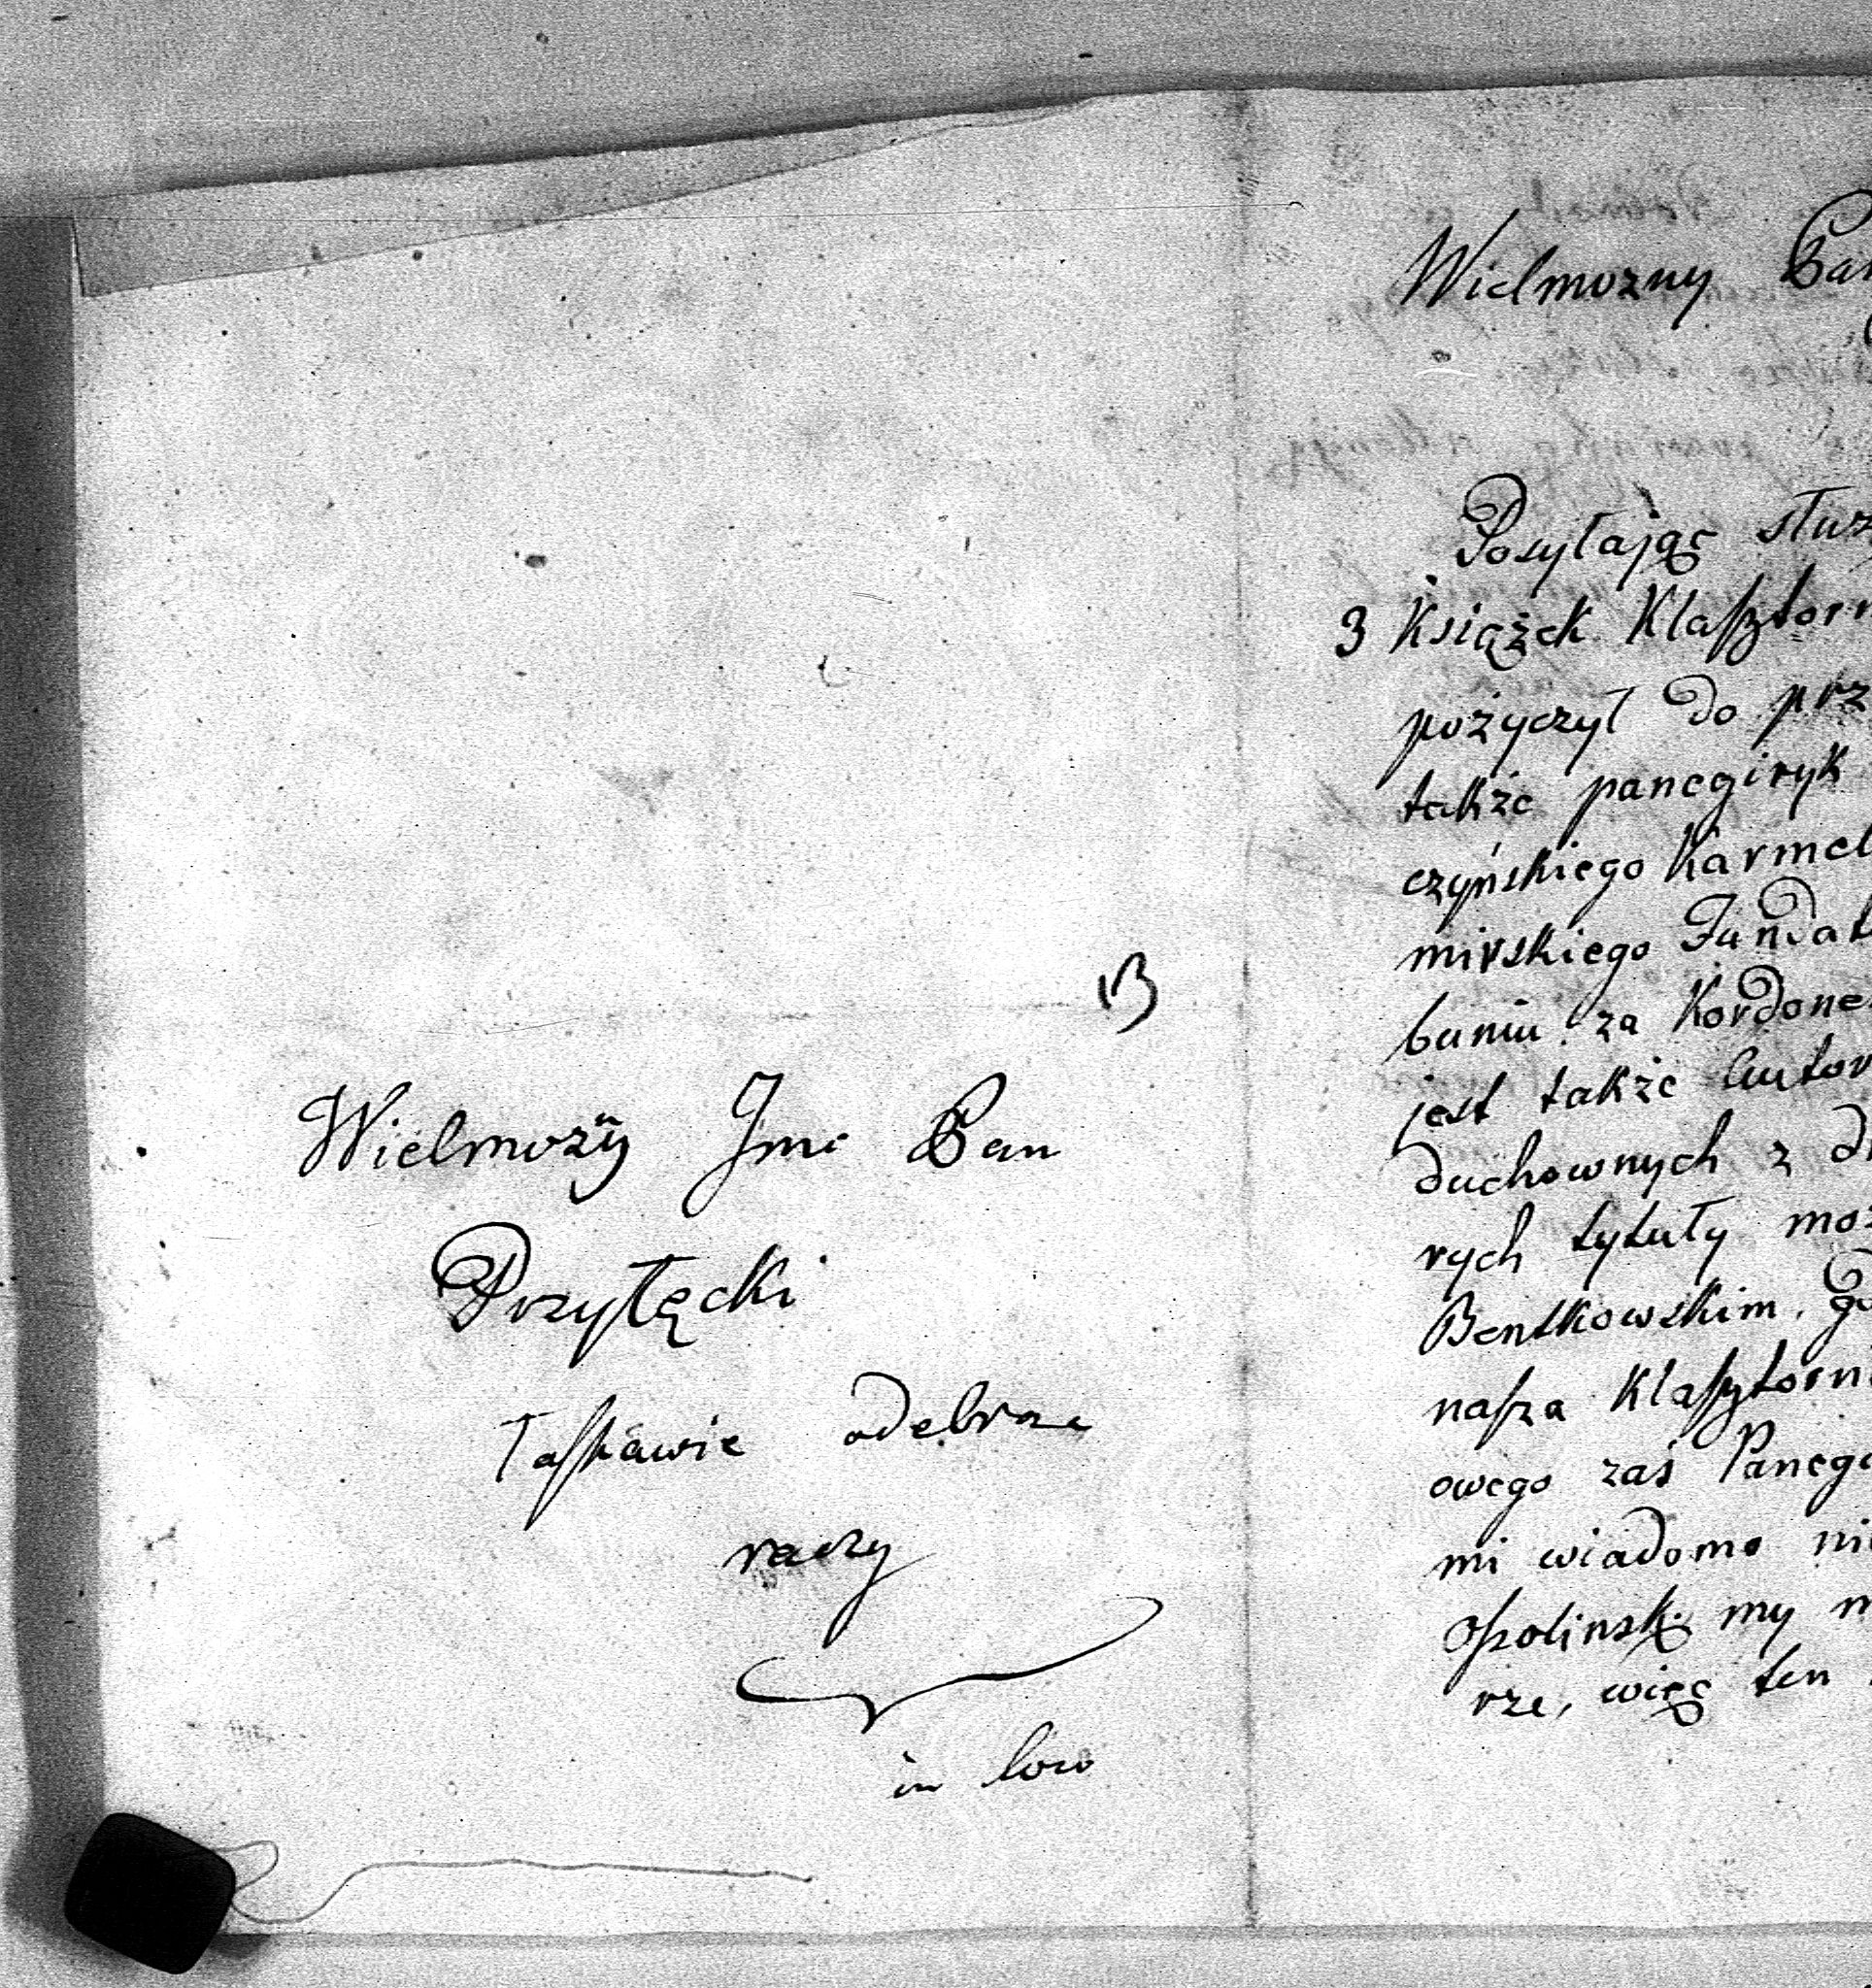 Wielmożÿ Jmć Pan
Przyłęcki
łaskawie odebrać
raczy
in loco
Wielmozny Pan
Posyłając służ
3 Książek Klasztorn
pożyczył do prz
także panegiryk
czyńskiego Karmel
mirskiego Fundat
buniu za Kordone
jest także Autor
duchownych z dr
rych tytuły moż
Bentkowskim, g
nasza Klasztorn
owego zaś Paneg
mi wiadomo ni
Ossolinski my n
rze, więc ten